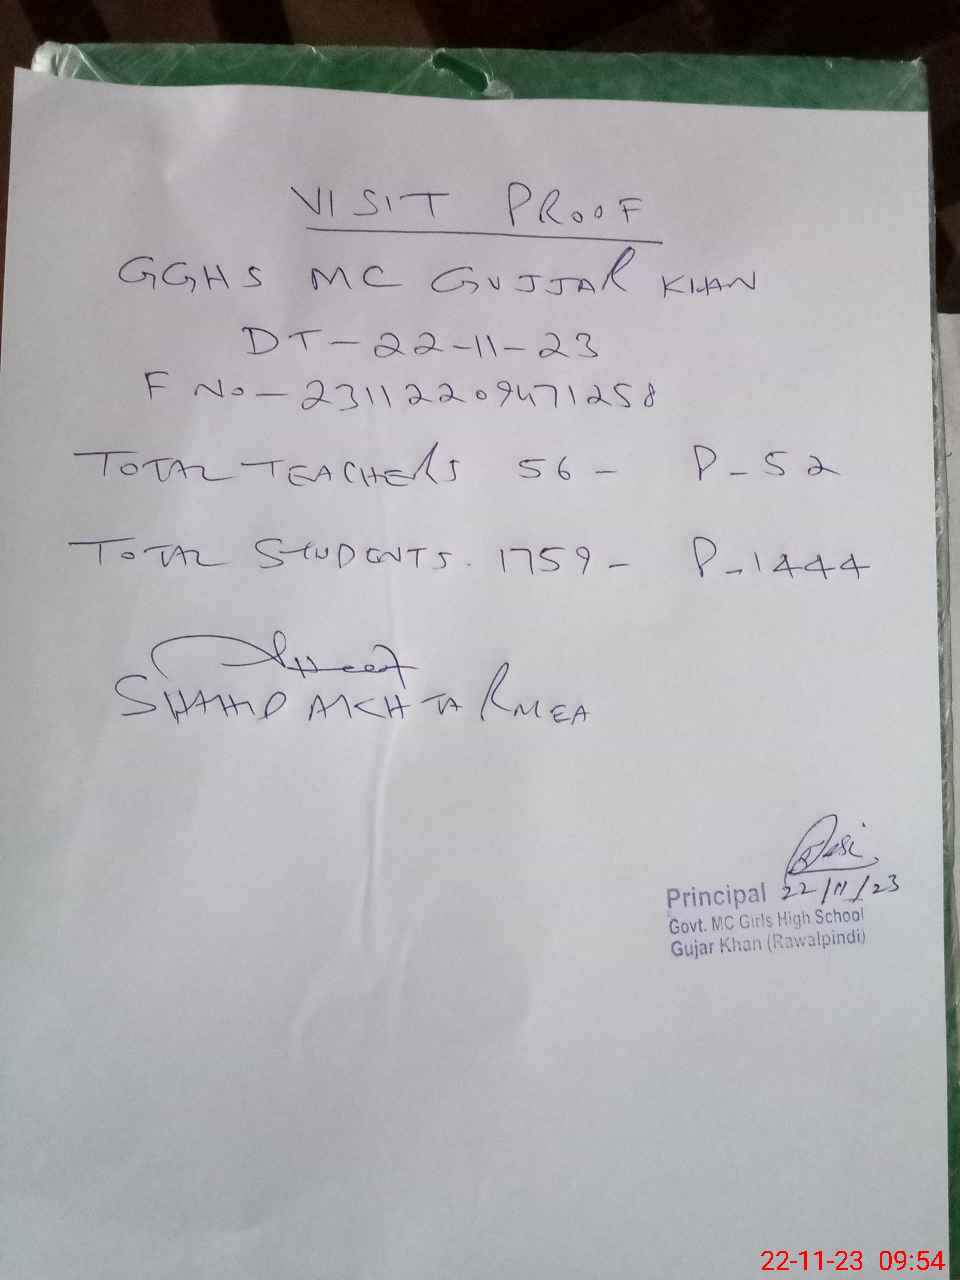 VISIT PROOF
GGHS MC GUJJAR KHAN
DT-22-11-23
F No-23112209471258
TOTAL TEACHERS 56- P-52
TOTAL STUDENTS. 1759- P-1444
SHAHID AKHTAR MEA
22/11/23
Principal
Govt. MC Girls High School
Gujar Khan (Rawalpindi)
22-11-23 09:54